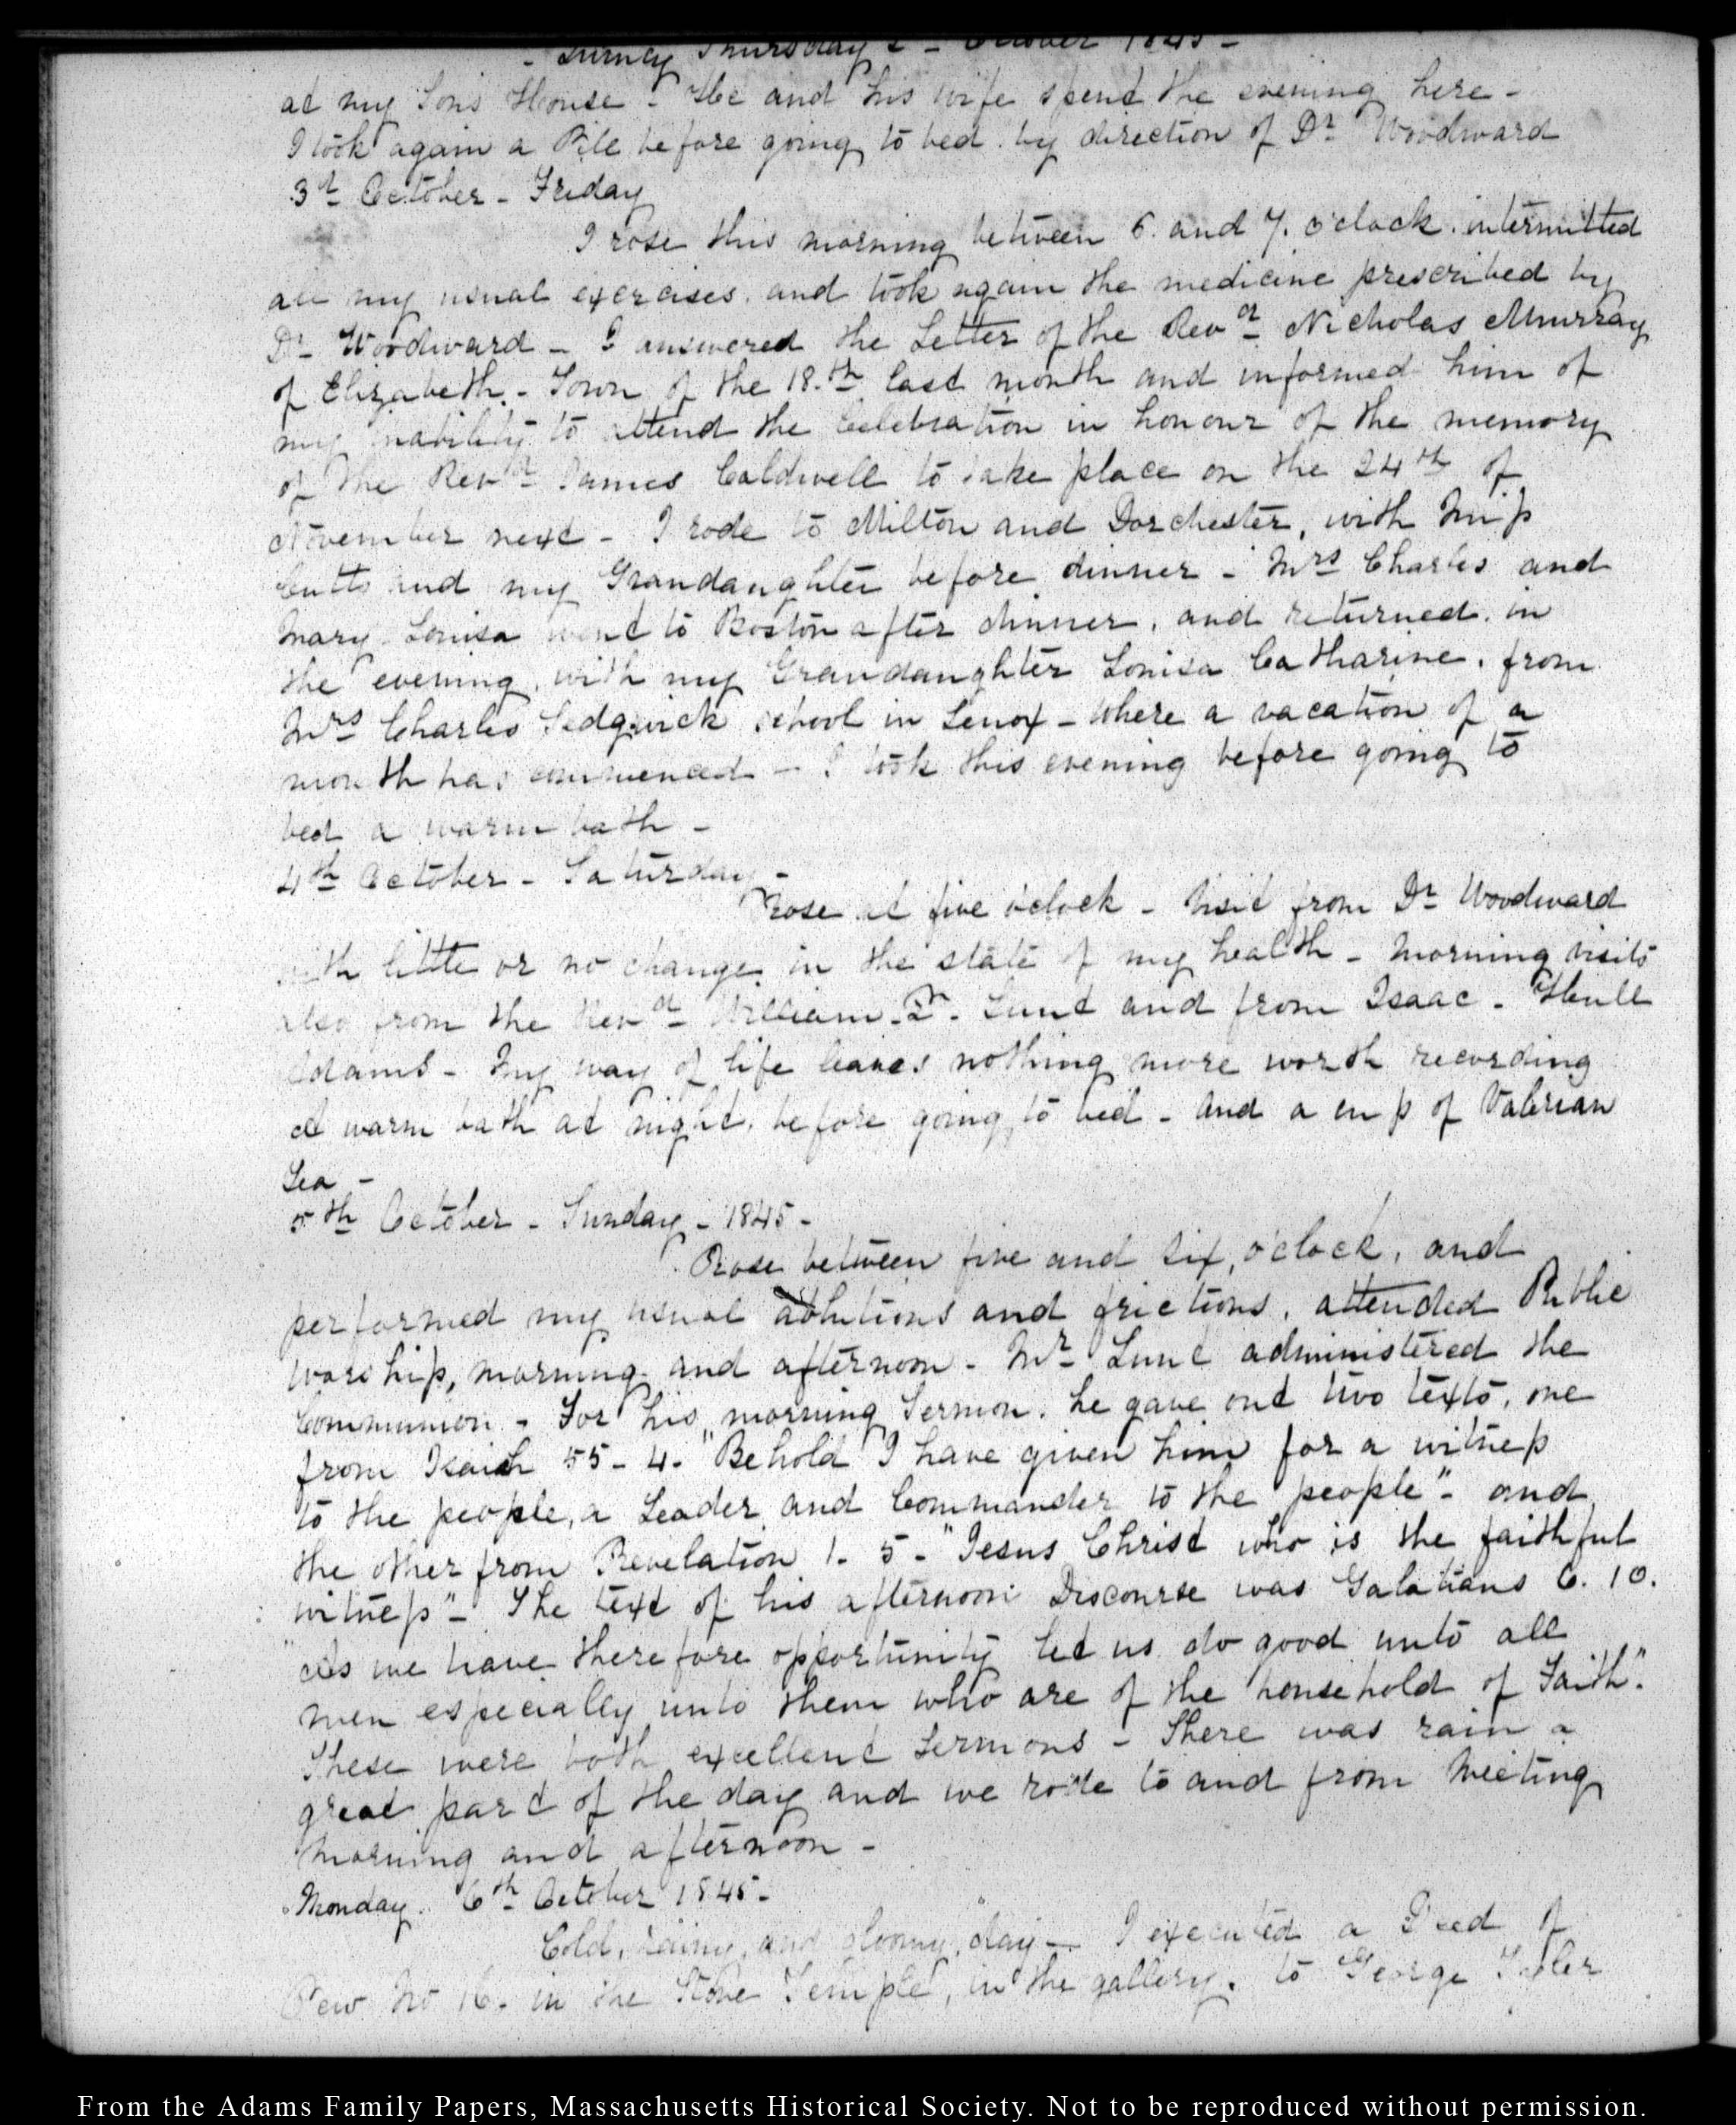 - Quincy Thursday 2 - October 1845 -
at my Sons House - He and his wife spent the evening here -
I took again a Pill before going to bed. by direction of Dr Woodward
3d October - Friday
I rose this morning between 6. and 7. o'clock. intermitted
all my usual exercises. and took again the medicine prescribed by
Dr Woodward - I answered the Letter of the Revd Nicholas Murray
of Elizabeth - Town of the 18.th last month and informed him of
my inability to attend the Celebration in honour of the memory
of the Revd James Caldwell to take place on the 24th of
November next - I rode to Milton and Dorchester, with Miss
Cutts and my Grandaughter before dinner - Mrs Charles and
Mary Louisa went to Boston after dinner, and returned in
the evening, with my Grandaughter Louisa Catharine, from
Mrs Charles Sedgwick school in Lenox - where a vacation of a
month has commenced - I took this evening before going to
bed a warm bath -
4th October - Saturday -
Rose at five o'clock - Visit from Dr Woodward
with little or no change in the state of my health - Morning visits
also from the Revd William P. Lunt and from Isaac - Hull
Adams - My way of life leaves nothing more worth recording
A warm bath at night, before going to bed - And a cup of Valerian
Tea -
5th October - Sunday - 1845 -
Rose between five and six, o'clock, and
performed my usual ablutions and frictions. attended Public
worship, morning and afternoon - Mr Lunt administered the
Communion - For his morning Sermon. he gave out two texts, one
from Isaiah 55 - 4. "Behold I have given him for a witness
to the people, a Leader and Commander to the people" - and
the other from Revelation 1. 5 - "Jesus Christ who is the faithful
witness" - The text of his afternoon Discourse was Galatians 6. 10.
"As we have therefore opportunity let us do good unto all
men especially unto them who are of the household of Faith".
These were both excellent Sermons - There was rain a
great part of the day and we rode to and from Meeting
Morning and afternoon -
Monday. 6th October 1845 -
Cold, rainy, and gloomy, day - I executed a Deed of
Pew No 16. in the Stone Temple, in the gallery. to George
From the Adams Family Papers, Massachusetts Historical Society. Not to be reproduced without permission.